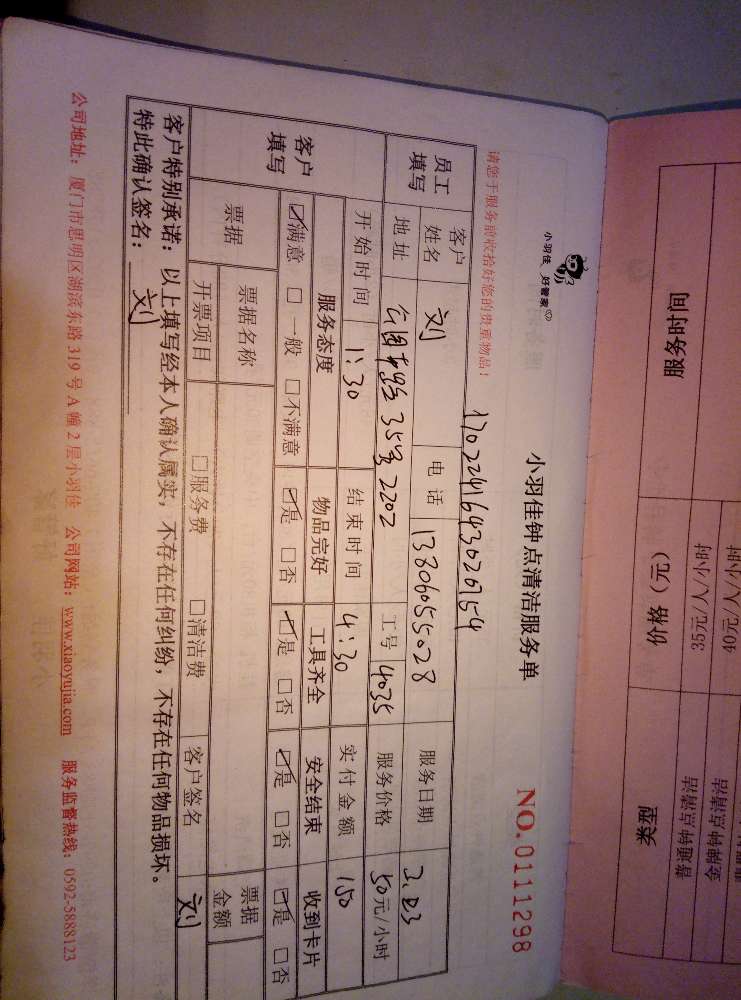 小羽佳 好管家
小羽佳钟点清洁服务单
NO.0111298
请您于服务前收拾好您的贵重物品！
1702241643026754
员工填写
客户姓名 刘 电话 13806055028 服务日期 2.23
地址 公园东路35号2202 工号 4035 服务价格 50元/小时
客户填写
开始时间 1:30 结束时间 4:30 实付金额 150
服务态度 物品完好 工具齐全 安全结束 收到卡片
☑满意 □一般 □不满意 ☑是 □否 ☑是 □否 ☑是 □否 ☑是 □否
票据 票据名称 票据金额
开票项目 □服务费 □清洁费 客户签名 刘
客户特别承诺：以上填写经本人确认属实，不存在任何纠纷，不存在任何物品损坏。
特此确认签名：刘
公司地址：厦门市思明区湖滨东路319号A幢2层小羽佳 公司网站：www.xiaoyujia.com 服务监督热线：0592-5888123
服务时间 价格（元） 类型
35元/人/小时 普通钟点清洁
40元/人/小时 金牌钟点清洁